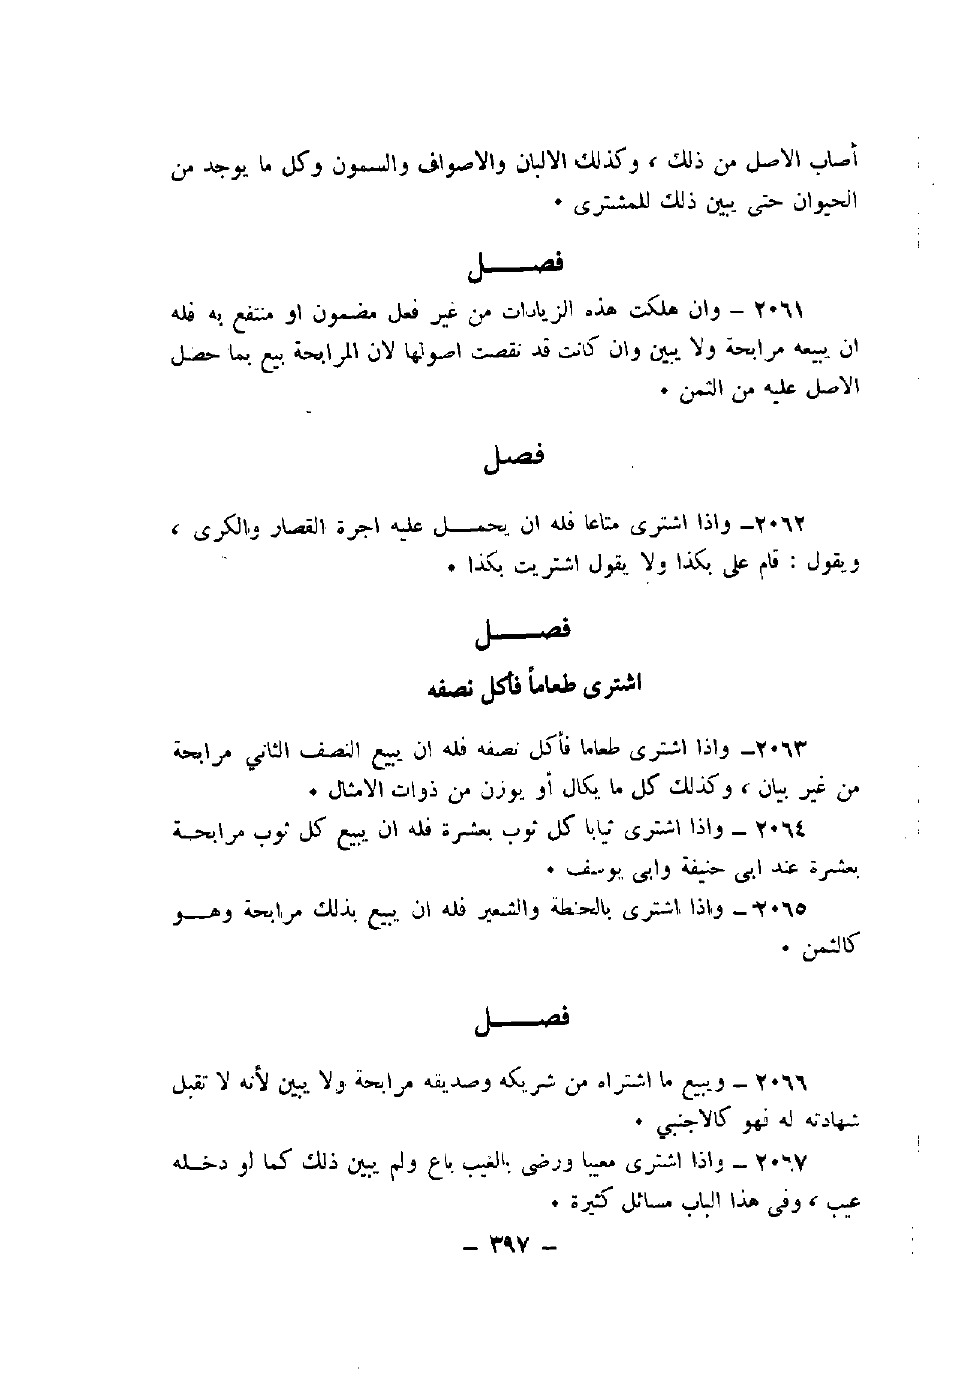 أصاب الاصل من ذلك ، وكذلك الالبان والاصواف والسمون وكل ما يوجد من
الحيوان حتى يبين ذلك للمشترى •
فصـــــل
٢٠٦١ – وان هلكت هذه الزيادات من غير فعل مضمون او منتفع به فله
ان يبيعه مرابحة ولا يبين وان كانت قد نقصت اصولها لان المرابحة بيع بما حصل
الاصل عليه من الثمن •
فصل
٢٠٦٢– واذا اشترى متاعا فله ان يحمـــل عليه اجرة القصار والكرى ،
ويقول : قام على بكذا ولا يقول اشتريت بكذا •
فصـــــل
اشترى طعاماً فأكل نصفه
٢٠٦٣– واذا اشترى طعاما فأكل نصفه فله ان يبيع النصف الثاني مرابحة
من غير بيان ، وكذلك كل ما يكال أو يوزن من ذوات الامثال •
٢٠٦٤ – واذا اشترى ثيابا كل ثوب بعشرة فله ان يبيع كل ثوب مرابحــة
بعشرة عند ابى حنيفة وابى يوسف •
٢٠٦٥ – واذا اشترى بالحنطة والشعير فله ان يبيع بذلك مرابحة وهـــو
كالثمن •
فصـــــل
٢٠٦٦ – ويبيع ما اشتراه من شريكه وصديقه مرابحة ولا يبين لأنه لا تقبل
شهادته له فهو كالاجنبي •
٢٠٦٧ – واذا اشترى معيبا ورضى بالعيب باع ولم يبين ذلك كما لو دخـله
عيب ، وفى هذا الباب مسائل كثيرة •
– ٣٩٧ –